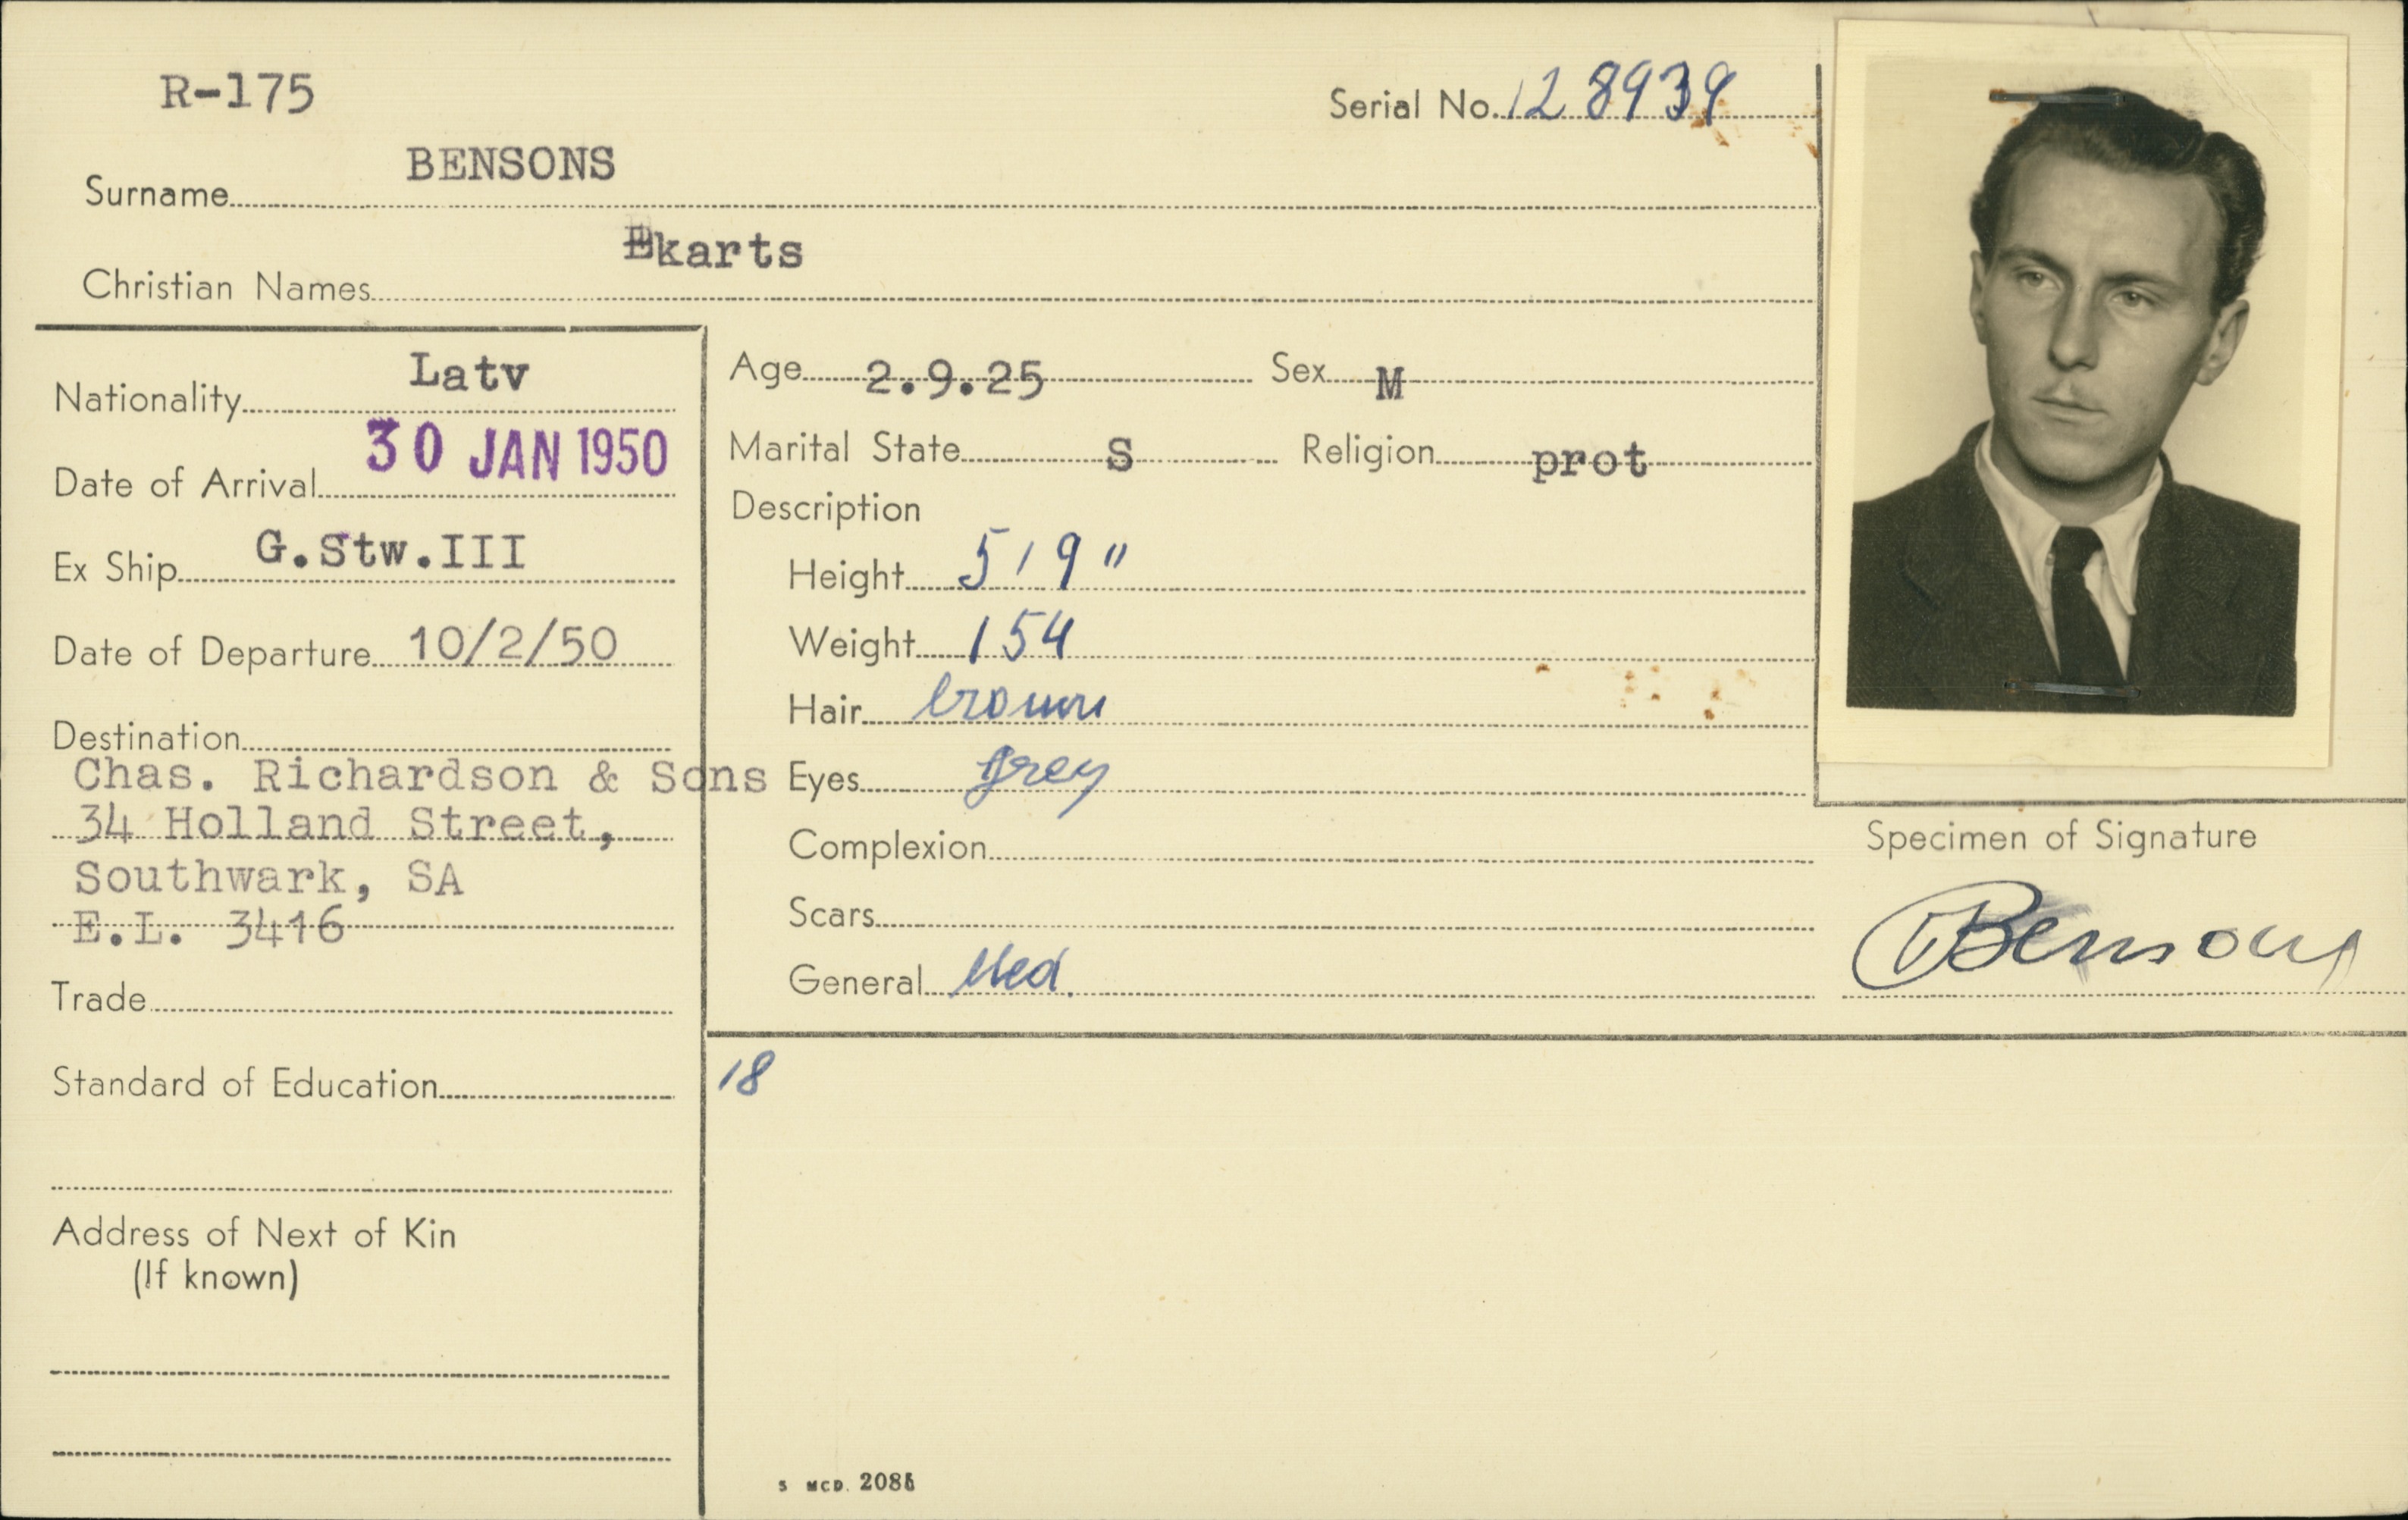 R-175
Serial No. 128939
Surname BENSONS
Christian Names Ekarts
Nationality Latv
Date of Arrival 30 JAN 1950
Ex Ship G.Stw.III
Date of Departure 10/2/50
Destination
Chas. Richardson & Sons
34 Holland Street,
Southwark, SA
E.L. 3416
Trade
Standard of Education
Address of Next of Kin
(If known)
Age 2.9.25 Sex M
Marital State S Religion prot
Description
Height 5'9"
Weight 154
Hair brown
Eyes grey
Complexion
Scars
General Med.
Specimen of Signature
Bensons
18
S MCD. 2086